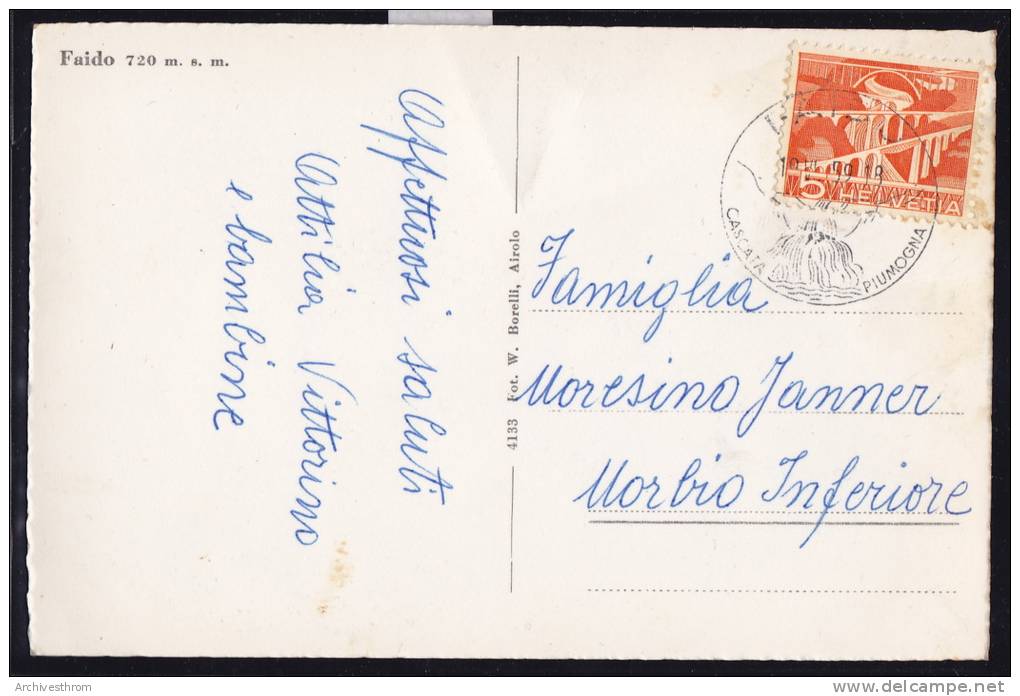 Faido 720 m. s. m.
Affettuosi saluti
Attilia Vittorino
e bambine
4133 Fot. W. Borelli, Airolo
5 HELVETIA
CASCATA PIUMOGNA
Famiglia
Moresino Janner
Morbio Inferiore
Archivesthrom
www.delcampe.net